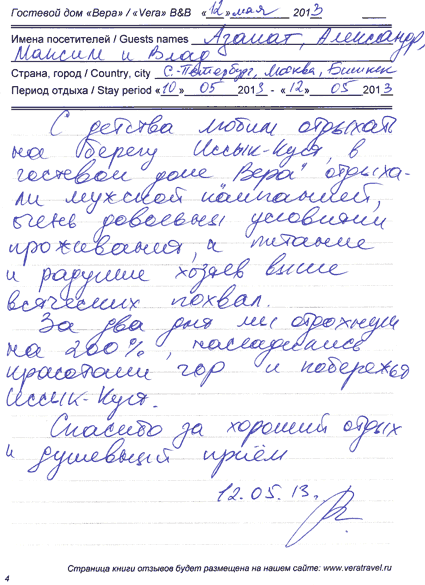 Гостевой дом «Вера» / «Vera» B&B «12» мая 2013
Имена посетителей / Guests names Азамат, Александр,
Максим и Влад
Страна, город / Country, city С.-Петербург, Москва, Бишкек
Период отдыха / Stay period «10» 05 2013 - «12» 05 2013
С детства любим отдыхать
на берегу Иссык-Куля, в
гостевом доме "Вера" отдыха-
ли мужской компанией,
очень довольны условиями
проживания, а питание
и радушие хозяев выше
всяческих похвал.
За два дня мы отдохнули
на 200%, насладились
красотами гор и побережья
Иссык-Куля.
Спасибо за хороший отдых
и душевный приём
12.05.13.
Страница книги отзывов будет размещена на нашем сайте: www.veratravel.ru
4